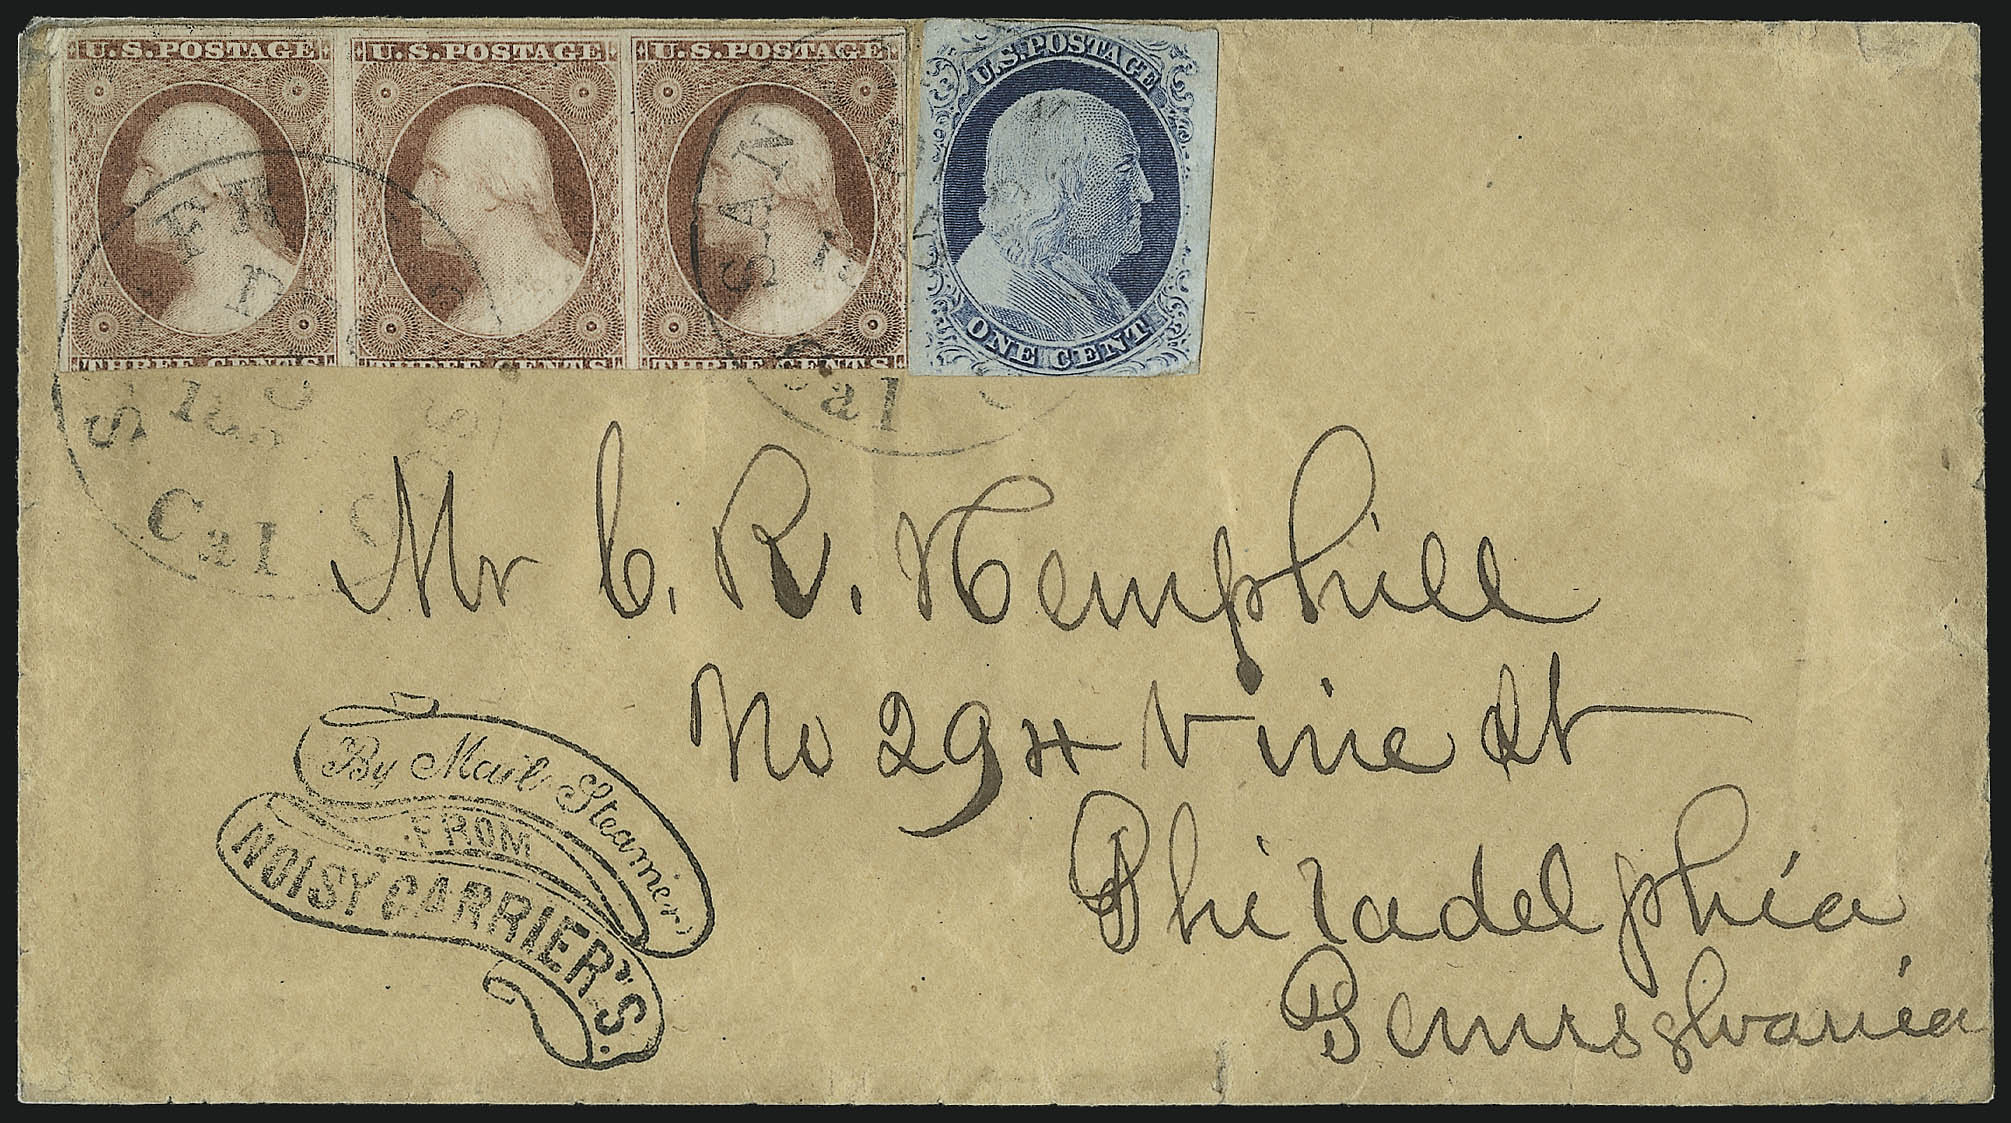 U.S.POSTAGE U.S.POSTAGE U.S.POSTAGE U.S.POSTAGE
THREE CENTS THREE CENTS THREE CENTS ONE CENT
SAN
Cal
Cal
Mr C. R. Hemphill
No 294 Vine St
Philadelphia
Pennsylvania
By Mail Steamer
FROM
NOISY CARRIER'S.